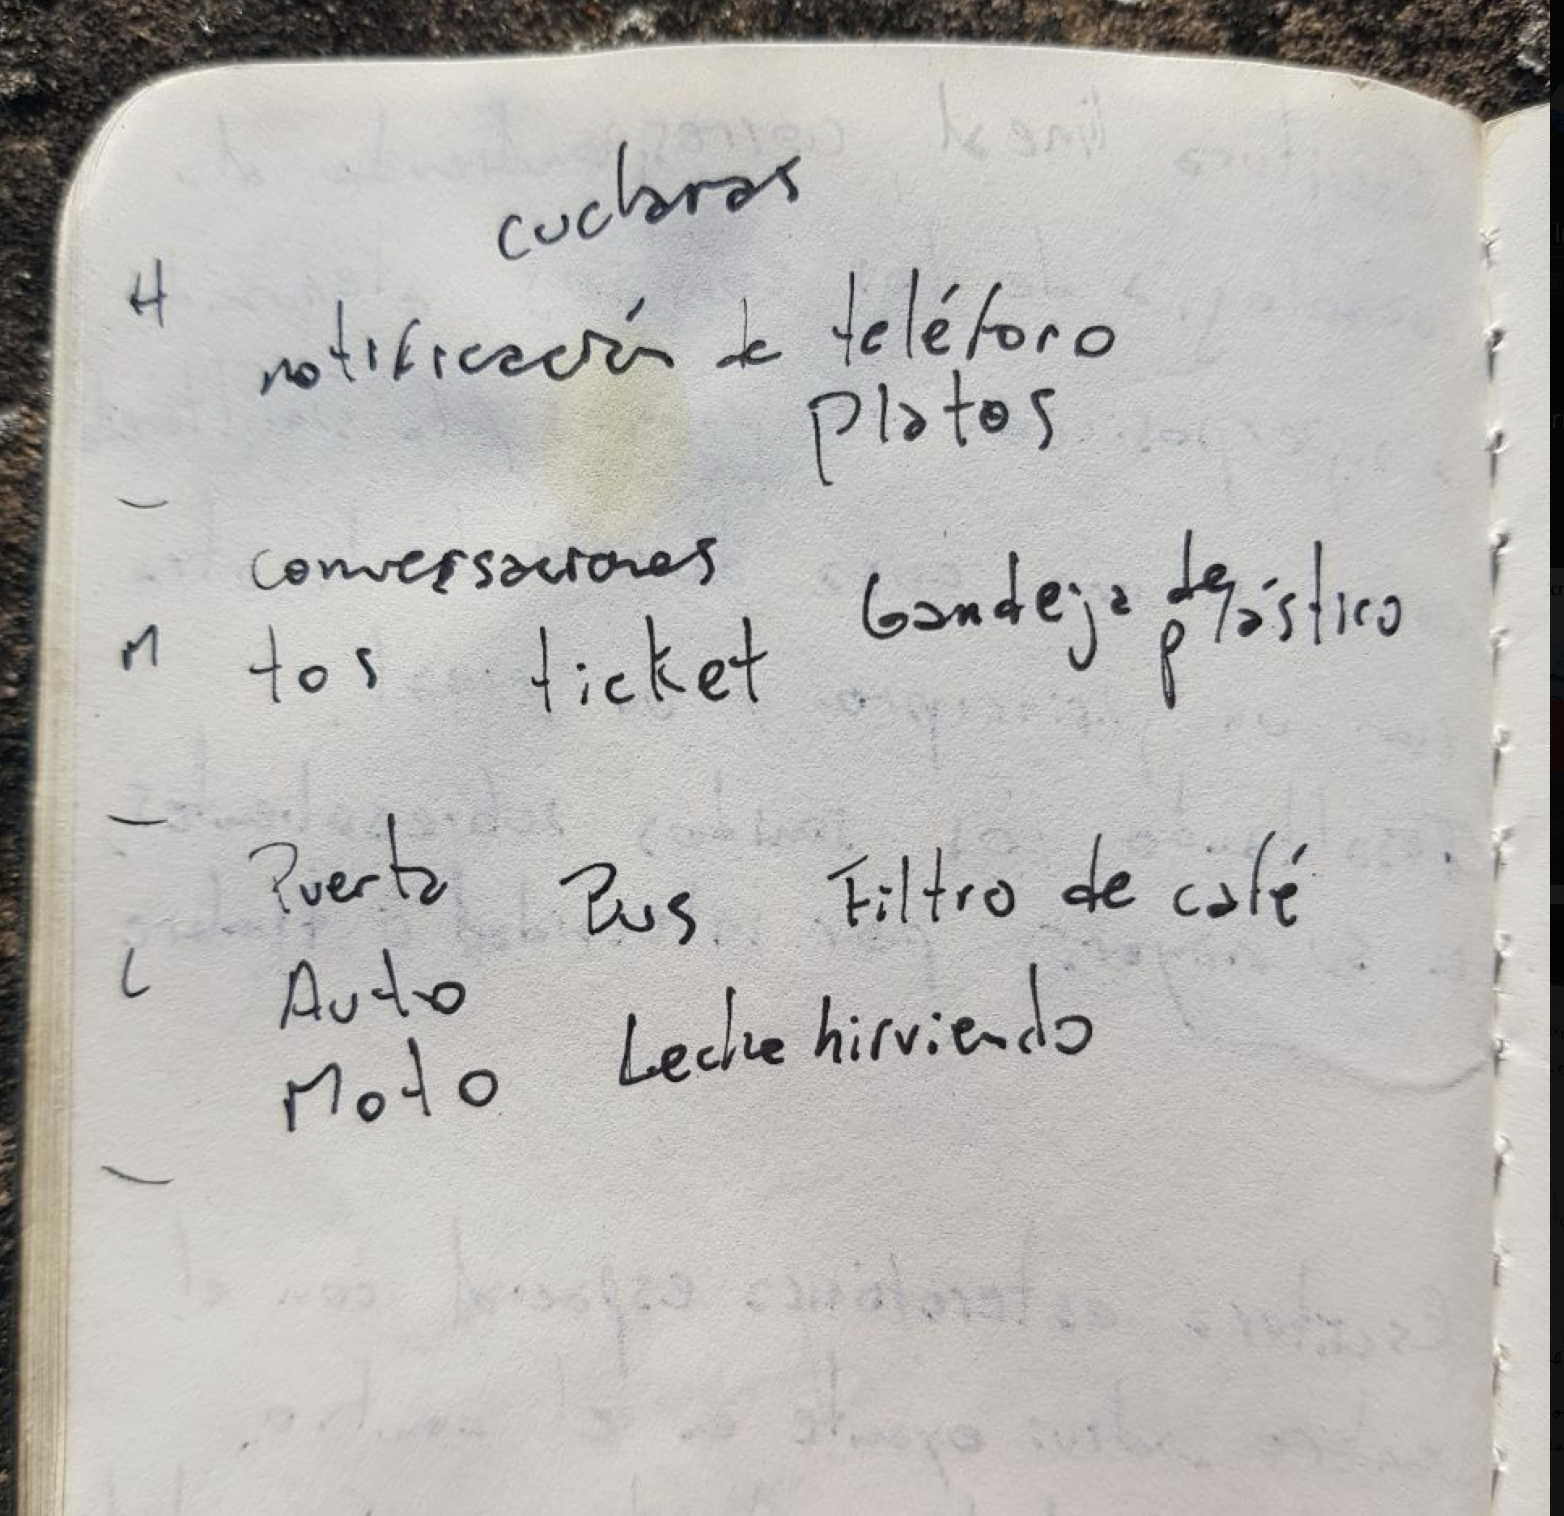 cucharas
H
notificación de teléfono
platos
conversaciones
bandeja de plástico
M
tos ticket
Puerta Bus Filtro de café
L
Auto
Leche hirviendo
Moto